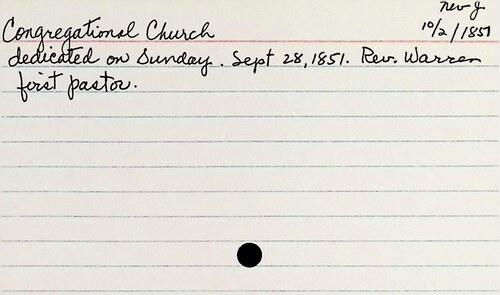 Nev J.
Congregational Church 10/2/1851
dedicated on Sunday. Sept 28, 1851. Rev. Warren
first pastor.